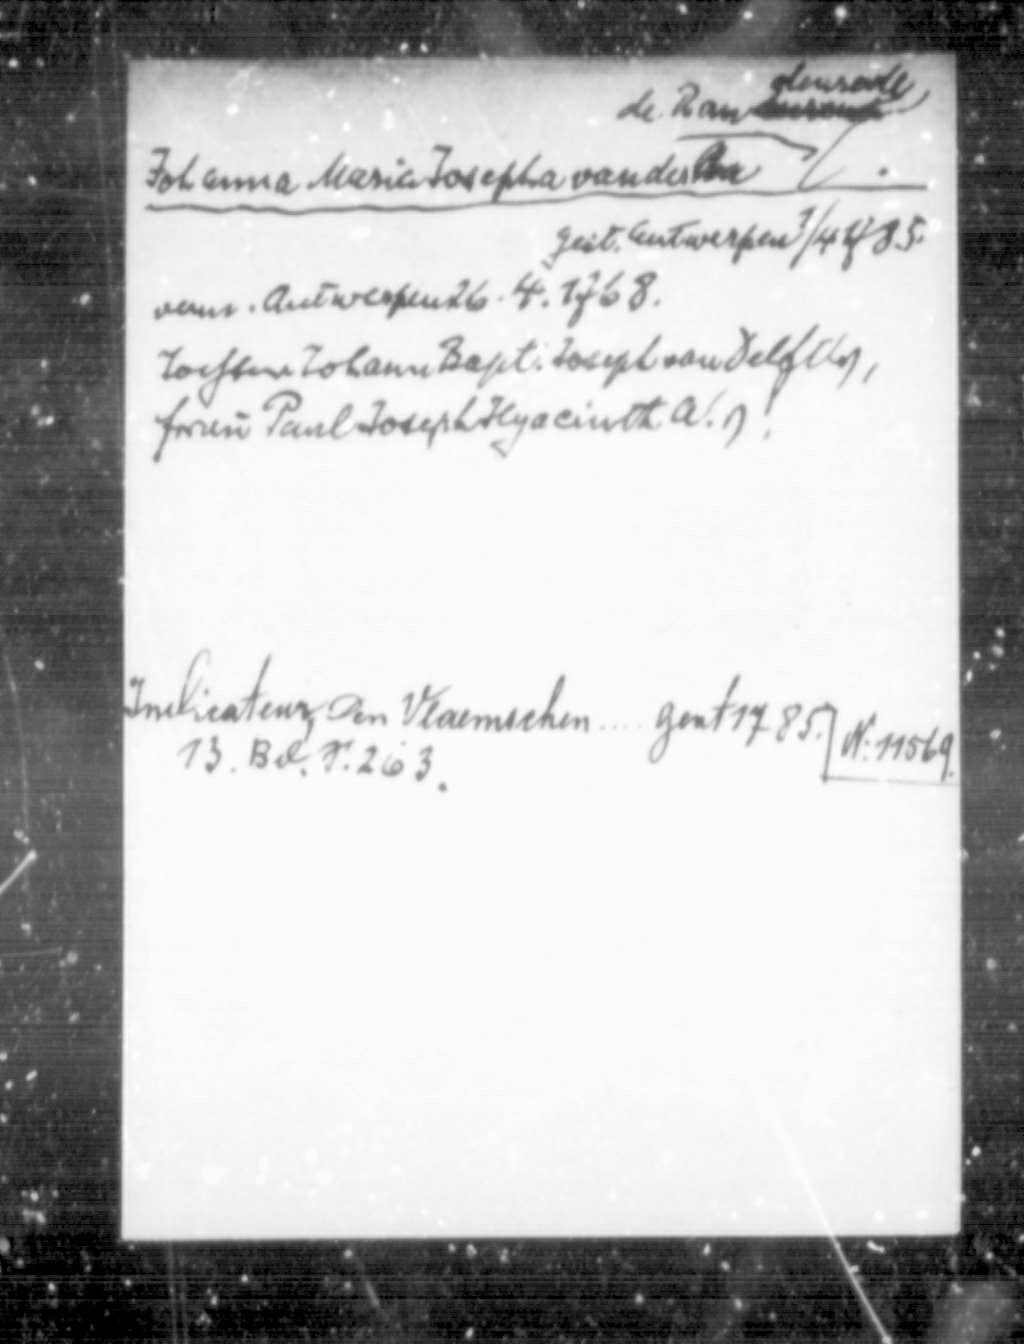 de Ran
Johanna Maria Josepha van der
gest. Antwerpen 7/4 1785.
verm. Antwerpen 26. 4. 1768.
Tochter Johann Bapt. Joseph van Delft
frau Paul Joseph Hyacinth A.
Indicateur, Den Vlaemschen .... gent 1785.
N: 11569.
13. Bd. S. 263.